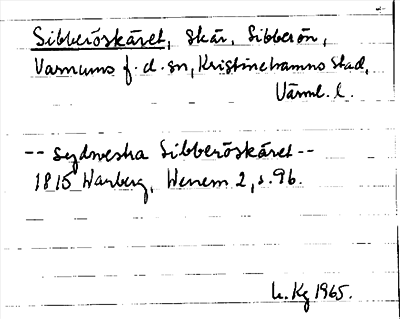 Sibberöskäret, skär, Sibberön,
Varnums f.d. sn, Kristinehamns stad,
Värml. l.
-- sydvestra Sibberöskäret --
1815 Warberg, Wenern 2, s. 96.
L. Kg 1965.